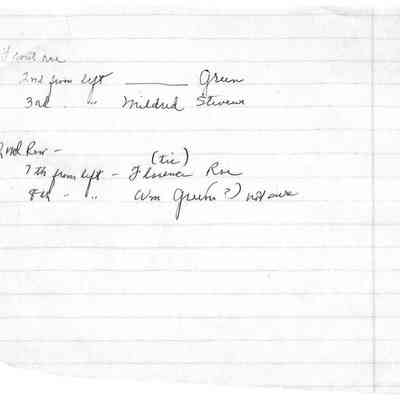 Front row
2nd from left ______ Green
3rd " " Mildred Stevens
2nd Row -
(tie)
7th from left - Florence Roe
8th - " Wm Green (?) not sure